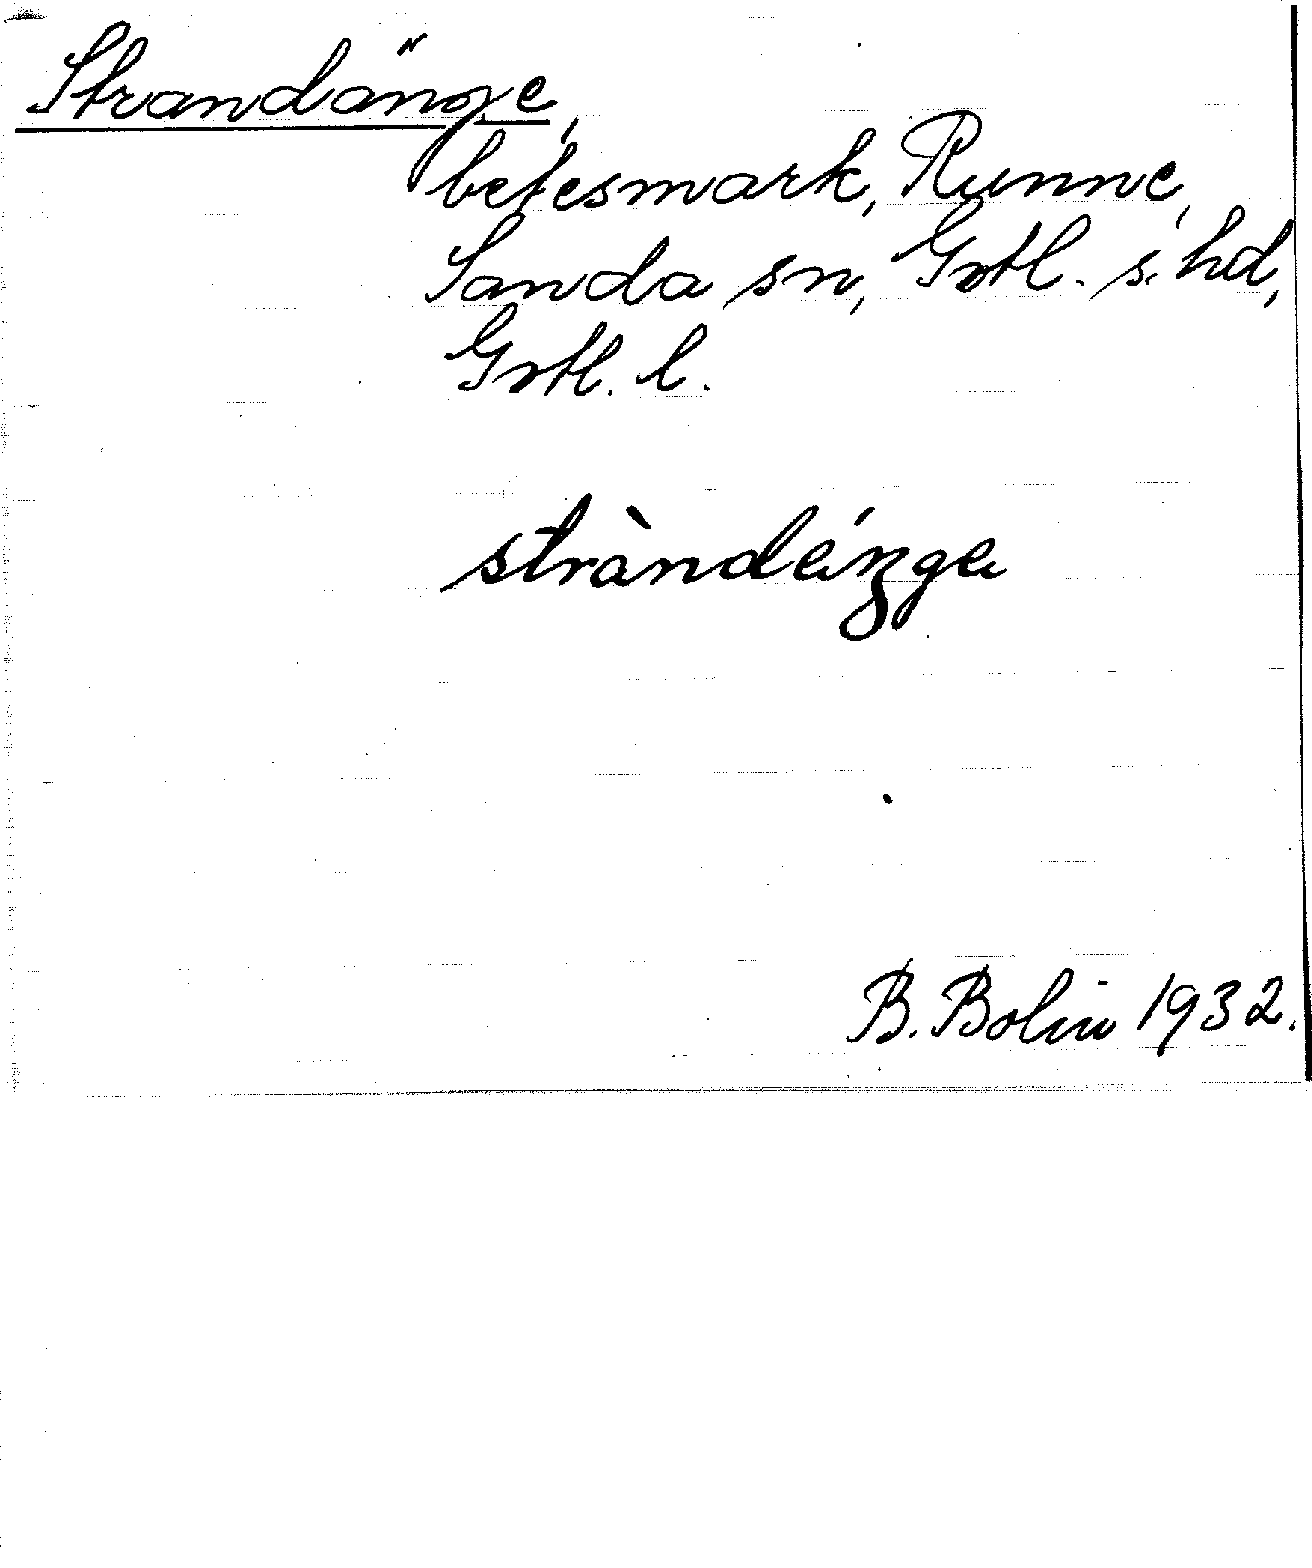 Strandänge,
betesmark, Runne,
Sanda sn, Gotl. s. hd,
Gotl. l.
stràndä́ŋgä
B. Bolin 1932.